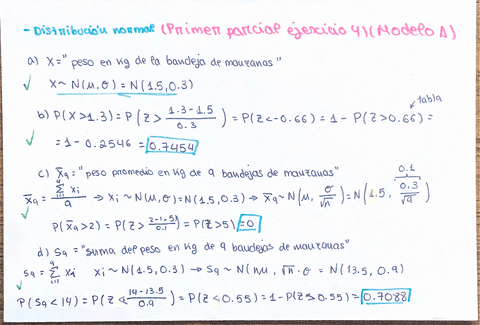 - Distribución normal (Primer parcial ejercicio 4) (Modelo A)
a) X = "peso en kg de la bandeja de manzanas"
✓ X ~ N(μ, σ) = N(1.5, 0.3)
tabla
b) P(X > 1.3) = P(Z > (1.3 - 1.5)/0.3) = P(Z < -0.66) = 1 - P(Z > 0.66) =
✓ = 1 - 0.2546 = 0.7454
c) X̄9 = "peso promedio en kg de 9 bandejas de manzanas"
X̄9 = Σ(i=1..9) Xi / 9 → Xi ~ N(μ, σ) = N(1.5, 0.3) → X̄9 ~ N(μ, σ/√n) = N(1.5, 0.3/√9) 0.1
✓ P(X̄9 > 2) = P(Z > (2 - 1.5)/0.1) = P(Z > 5) = 0
d) S9 = "suma del peso en kg de 9 bandejas de manzanas"
S9 = Σ(i=1..9) Xi Xi ~ N(1.5, 0.3) → S9 ~ N(nμ, √n · σ = N(13.5, 0.9)
✓ P(S9 < 14) = P(Z < (14 - 13.5)/0.9) = P(Z < 0.55) = 1 - P(Z ≤ 0.55) = 0.7088